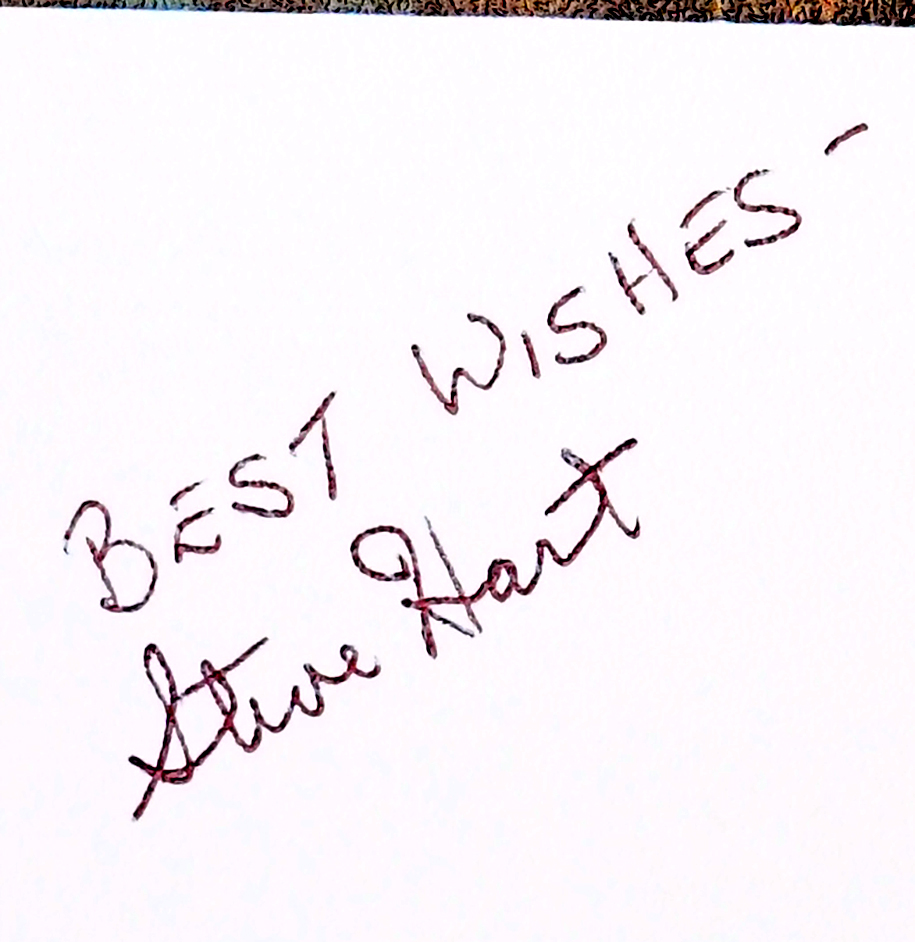 BEST WISHES -
Steve Hart